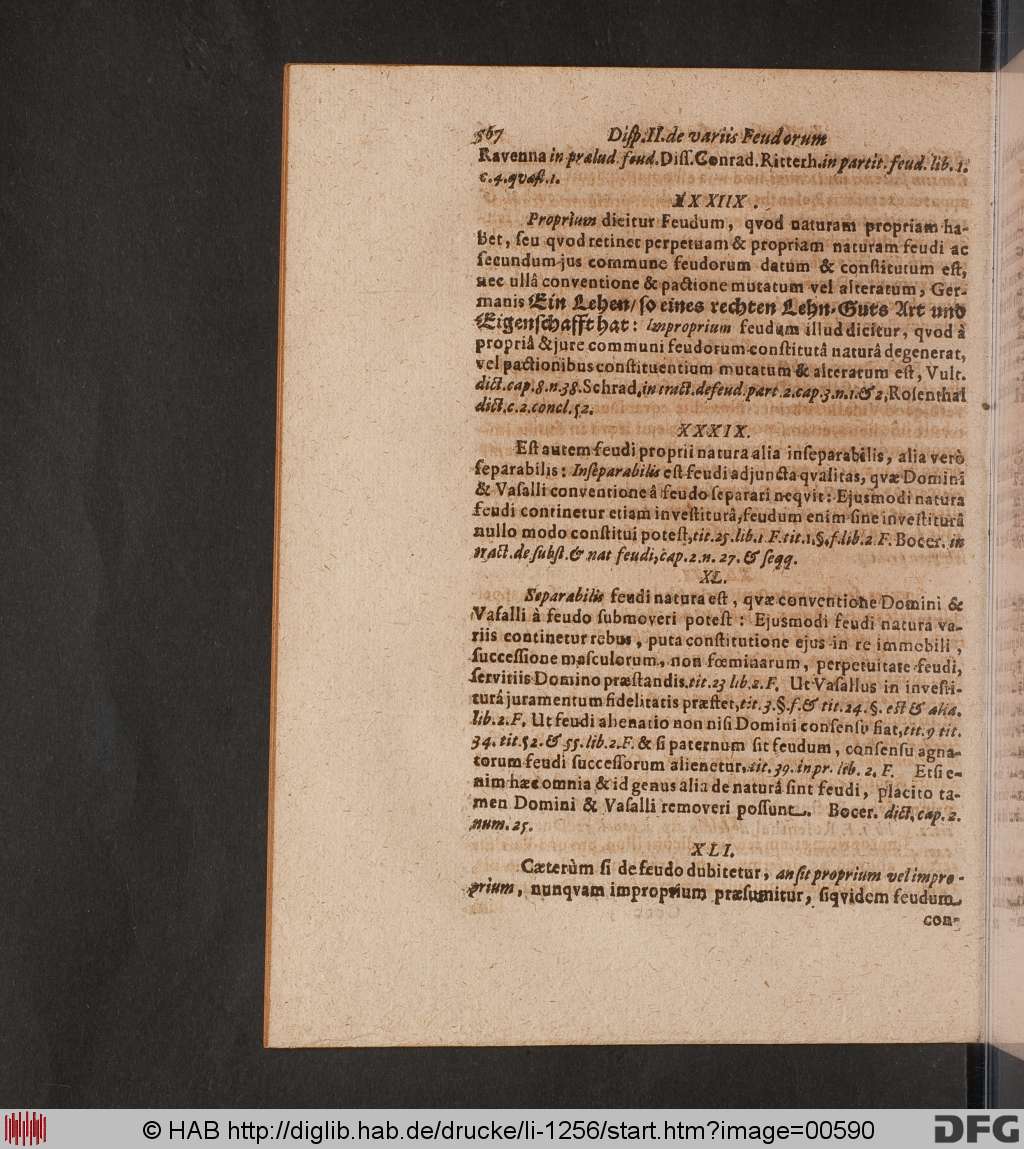 567 Disp. II. de variis Feudorum
Ravenna in prælud. feud. Diss. Conrad. Ritterh. in partit. feud. lib. 1.
c. 4. qvæst. 1.
XXXIIX.
Proprium dicitur Feudum, qvod naturam propriam ha-
bet, seu qvod retinet perpetuam & propriam naturam feudi ac
secundum jus commune feudorum datum & constitutum est,
nec ullâ conventione & pactione mutatum vel alteratum, Ger-
manis Ein Lehen/ so eines rechten Lehn-Guts Art und
Eigenschafft hat: Improprium feudum illud dicitur, qvod à
propriâ & jure communi feudorum constitutâ naturâ degenerat,
vel pactionibus constituentium mutatum & alteratum est, Vult.
dict. cap. 8. n. 38. Schrad. in tract. de feud. part. 2. cap. 3. n. 1. & 2, Rosenthal
dict. c. 2. concl. 52.
XXXIX.
Est autem feudi proprii natura alia inseparabilis, alia verò
separabilis: Inseparabilis est feudi adjuncta qvalitas, qvæ Domini
& Vasalli conventione â feudo separari neqvit: Ejusmodi natura
feudi continetur etiam investiturâ, feudum enim sine investiturâ
nullo modo constitui potest, tit. 25. lib. 1. F. tit. 1. §. f. lib. 2. F. Bocer. in
tract. de subst. & nat feudi, cap. 2. n. 27. & seqq.
XL.
Separabilis feudi natura est, qvæ conventione Domini &
Vasalli à feudo submoveri potest: Ejusmodi feudi natura va-
riis continetur rebus, puta constitutione ejus in re immobili,
successione masculorum, non fœminarum, perpetuitate feudi,
servitiis Domino præstandis. tit. 23 lib. 2. F. Ut Vasallus in investi-
turâ juramentum fidelitatis præstet, tit. 3. §. f. & tit. 24. §. est & alia.
lib. 2. F. Ut feudi alienatio non nisi Domini consensu fiat, tit. 9 tit.
34. tit. 52. & 55. lib. 2. F. & si paternum sit feudum, consensu agna-
torum feudi successorum alienetur, tit. 39. in pr. lib. 2. F. Etsi e-
nim hæc omnia & id genus alia de naturâ sint feudi, placito ta-
men Domini & Vasalli removeri possunt. Bocer. dict. cap. 2.
num. 25.
XLI.
Cæterùm si de feudo dubitetur, an sit proprium vel impro-
prium, nunqvam improprium præsumitur, siqvidem feudum
con-
© HAB http://diglib.hab.de/drucke/li-1256/start.htm?image=00590
DFG